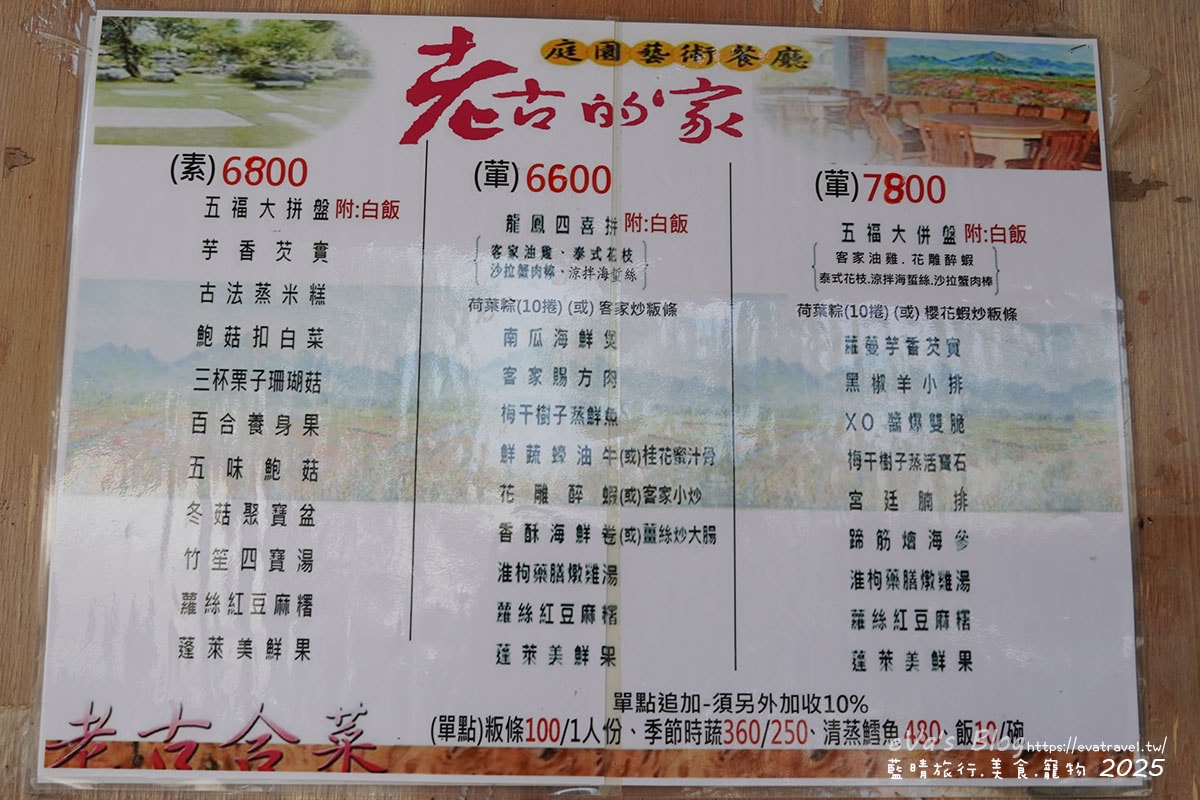 庭園藝術餐廳
老古的家
(素)6800
五福大拼盤 附:白飯
芋香芡實
古法蒸米糕
鮑菇扣白菜
三杯栗子珊瑚菇
百合養身果
五味鮑菇
冬菇聚寶盆
竹笙四寶湯
蘿絲紅豆麻糬
蓬萊美鮮果
(葷)6600
龍鳳四喜拼 附:白飯
客家油雞、泰式花枝
沙拉蟹肉棒、涼拌海蜇絲
荷葉粽(10捲) (或) 客家炒粄條
南瓜海鮮煲
客家賜方肉
梅干樹子蒸鮮魚
鮮蔬蠔油牛(或)桂花蜜汁骨
花雕醉蝦(或)客家小炒
香酥海鮮卷(或)薑絲炒大腸
淮枸藥膳燉雞湯
蘿絲紅豆麻糬
蓬萊美鮮果
(葷)7800
五福大併盤 附:白飯
客家油雞.花雕醉蝦
泰式花枝.涼拌海蜇絲.沙拉蟹肉棒
荷葉粽(10捲) (或) 櫻花蝦炒粄條
蘿蔓芋香芡實
黑椒羊小排
XO醬爆雙脆
梅干樹子蒸活寶石
宮廷腩排
蹄筋燴海參
淮枸藥膳燉雞湯
蘿絲紅豆麻糬
蓬萊美鮮果
單點追加-須另外加收10%
(單點)粄條100/1人份、季節時蔬360/250、清蒸鱈魚480、飯10/碗
老古合菜
eva's Blog https://evatravel.tw/
藍晴旅行.美食.寵物 2025